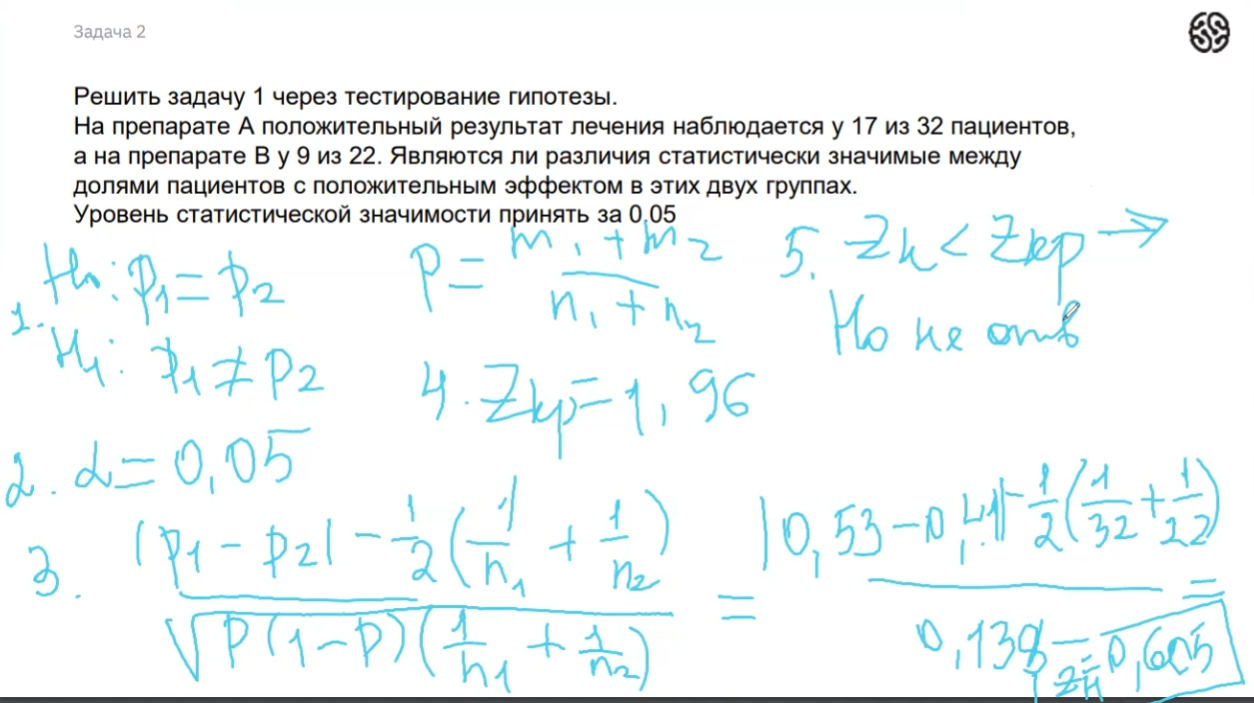 Задача 2
Решить задачу 1 через тестирование гипотезы.
На препарате А положительный результат лечения наблюдается у 17 из 32 пациентов,
а на препарате В у 9 из 22. Являются ли различия статистически значимые между
долями пациентов с положительным эффектом в этих двух группах.
Уровень статистической значимости принять за 0,05
1. H₀: p₁ = p₂
H₁: p₁ ≠ p₂
2. α = 0,05
3. (|p₁ - p₂| - 1/2 (1/n₁ + 1/n₂)) / √(p(1-p)(1/n₁ + 1/n₂)) = (|0,53 - 0,41| - 1/2 (1/32 + 1/22)) / 0,138 =
p = (m₁ + m₂) / (n₁ + n₂)
4. Zкр = 1,96
5. Zн < Zкр →
H₀ не отв